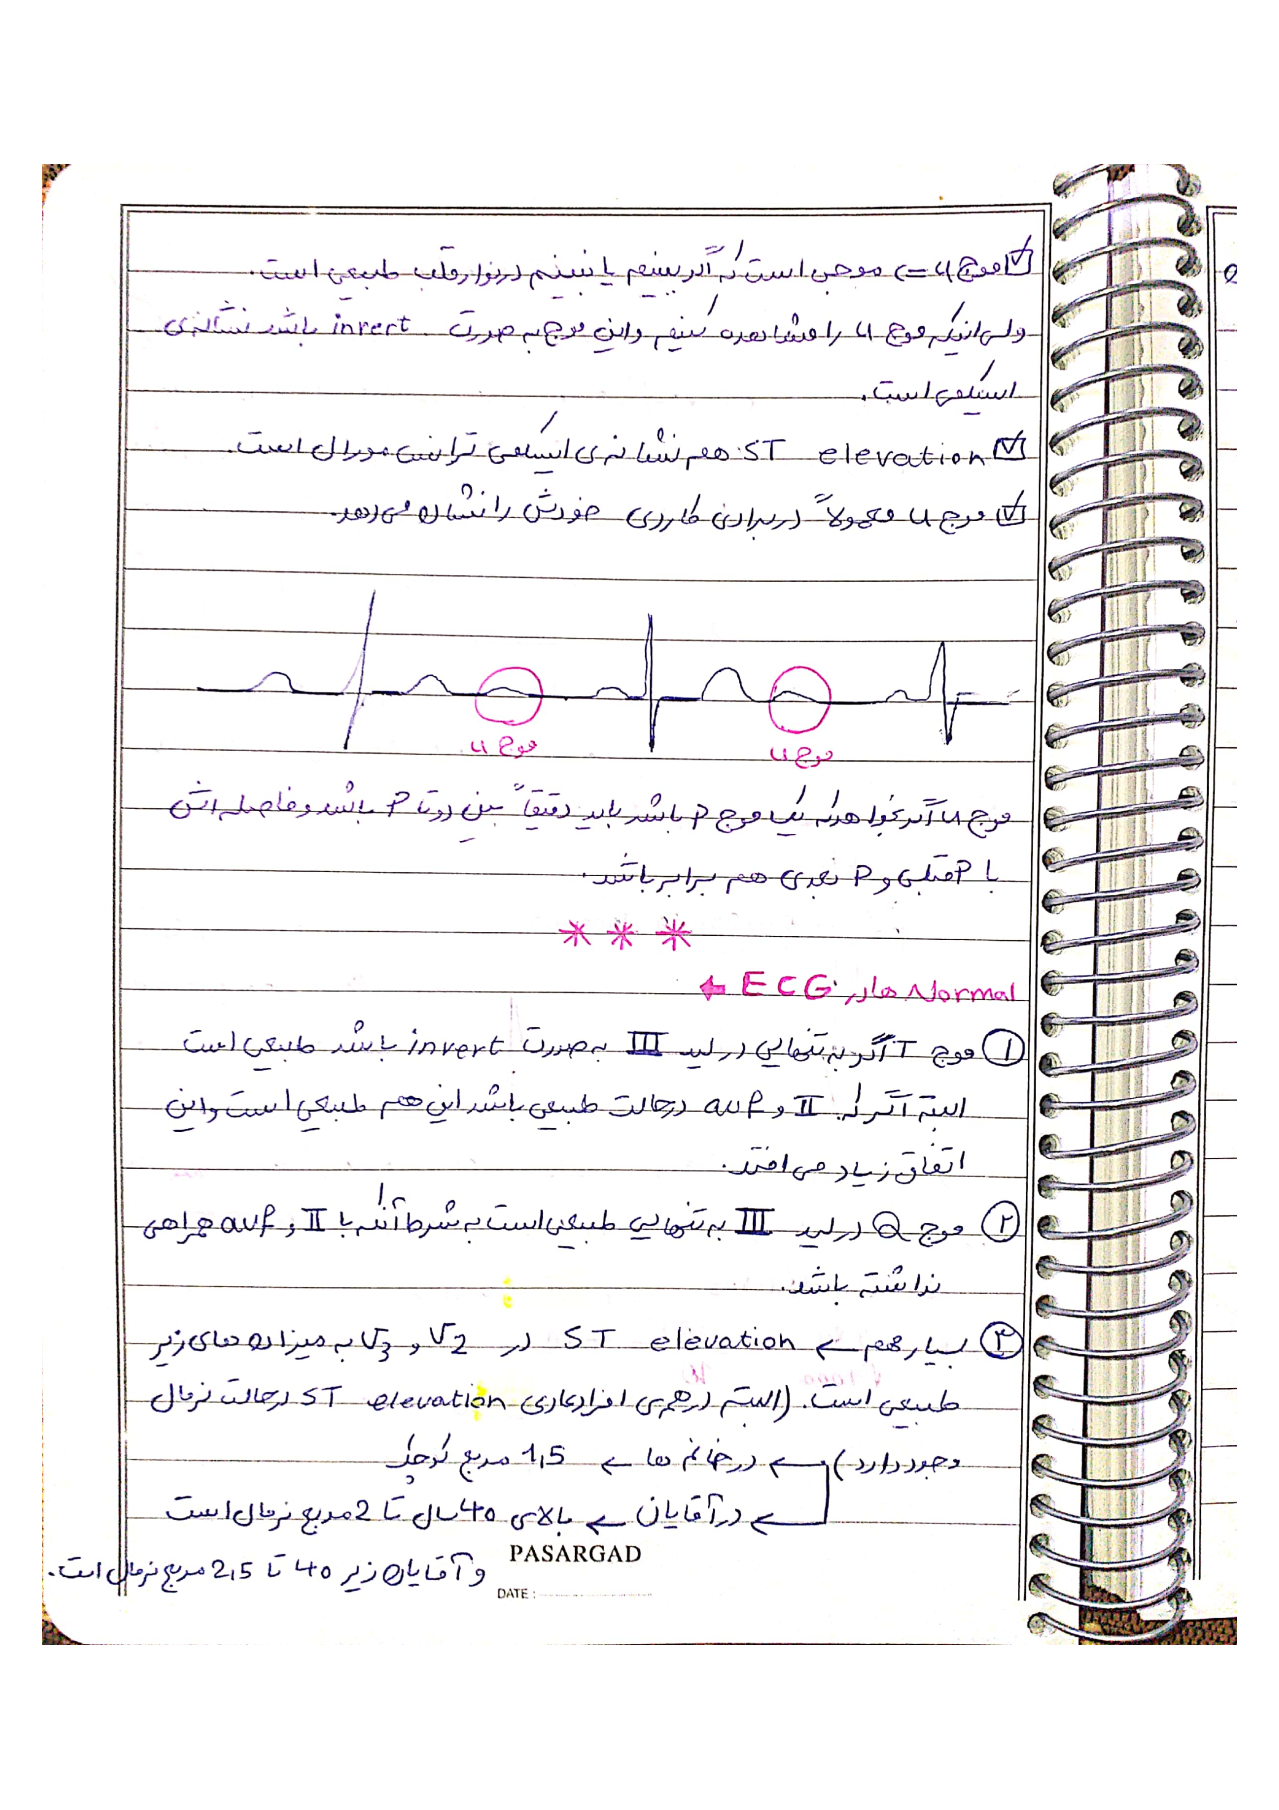 موج u => موجی است که اگر ببینیم یا نبینیم در نوار قلب طبیعی است.
ولی اینکه موج u را مشاهده کنیم و این موج به صورت invert باشد نشانه‌ی
ایسکمی است.
ST elevation هم نشانه‌ی ایسکمی ترانس مورال است.
موج u معمولاً در برادی کاردی خودش را نشان می‌دهد.
موج u موج u
موج u اگر بخواهد که یک موج P باشد باید دقیقاً بین دوتا P باشد و فاصله اش
با P قبلی و P بعدی هم برابر باشد.
***
Normal ها در ECG ←
① موج T اگر به تنهایی در لید III به صورت invert باشد طبیعی است
البته اگر که II و avf درحالت طبیعی باشد این هم طبیعی است و این
اتفاق زیاد می افتد.
② موج Q در لید III به تنهایی طبیعی است به شرط آنکه با II و avf همراهی
نداشته باشد.
③ بسیار مهم ← ST elevation در V2 و V3 به میزان های زیر
طبیعی است. (البته در همه‌ی افراد عادی ST elevation درحالت نرمال
وجود دارد) ← در خانم ها ← 1,5 مربع کوچک
← در آقایان ← بالای ۴۰ سال تا 2 مربع نرمال است
و آقایان زیر ۴۰ تا 2,5 مربع نرمال است.
PASARGAD
DATE :